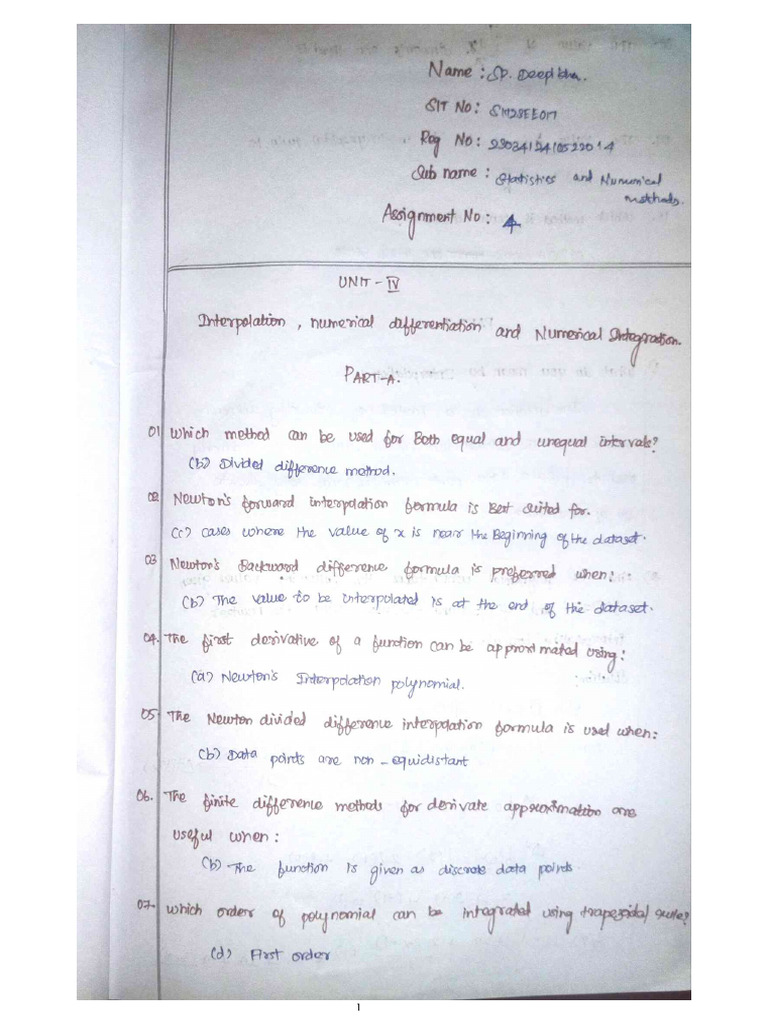 Name : SP. Deepikha.
SIT No: SM23EE017
Reg No:
Sub name : Statistics and Numurical
methods.
Assignment No: 4
UNIT - IV
Interpolation, numerical differentiation and Numerical Integration.
PART-A.
01 which method can be used for Both equal and unequal intervals?
(b) Divided difference method.
02 Newton's forward interpolation formula is Best suited for.
(c) cases where the value of x is near the Beginning of the dataset.
03 Newton's Backward difference formula is preferred when:
(b) The value to be interpolated is at the end of the dataset.
04. The first derivative of a function can be approximated using:
(a) Newton's Interpolation polynomial.
05 The Newton divided difference interpolation formula is used when:
(b) Data points are non-equidistant
06. The finite difference methods for derivate approximation are
useful when:
(b) The function is given as discrete data points
07. which order of polynomial can be integrated using trapezoidal rule?
(d) First order
1